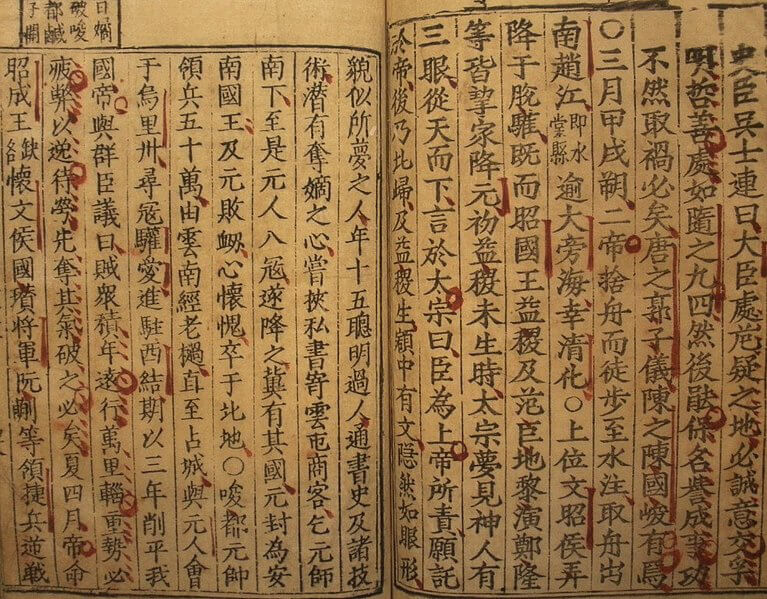 史臣吳士連曰大臣處危疑之地必誠意交孚
明哲善處如隨之九四然後能保名譽成事功
不然取禍必矣唐之郭子儀陳之陳國峻有焉
○三月甲戌朔二帝捨舟而徒步至水注取舟出
南趙江即水棠縣逾大旁海幸清化○上位文昭侯弄
降于脫驩既而昭國王益稷及范巨地黎演鄭隆
等皆挈家降元初益稷未生時太宗夢見神人有
三眼從天而下言於太宗曰臣為上帝所責願託
於帝後乃北歸及益稷生額中有文隱然如眼形
貌似所夢之人年十五聰明過人通書史及諸技
術潜有奪嫡之心嘗挾私書寄雲屯商客乞元師
南下至是元人入寇遂降之冀有其國元封為安
南國王及元敗衂心懷愧卒于北地○唆都元帥
領兵五十萬由雲南經老撾直至占城與元人會
于烏里州尋寇驩愛進駐西結期以三年削平我
國帝與群臣議曰賊衆積年遠行萬里輜重勢必
疲弊以逸待勞先奪其氣破之必矣夏四月帝命
昭成王缺懷文侯國瓚將軍阮蒯等領捷兵逆戰
破唆
都鹹
子關